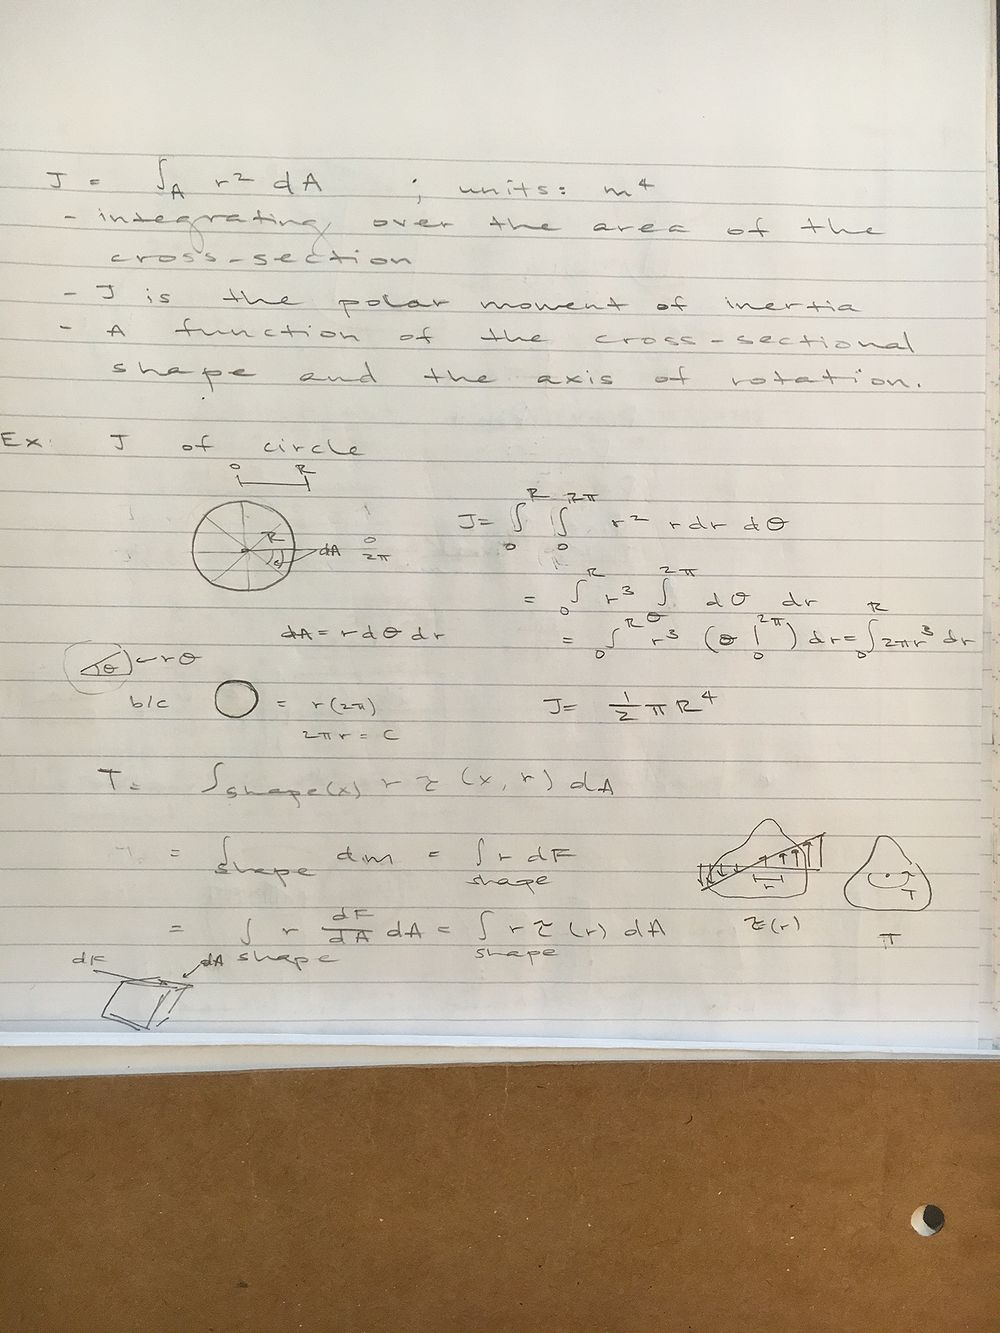 J = ∫_A r² dA ; units: m⁴
- integrating over the area of the
cross-section
- J is the polar moment of inertia
- A function of the cross-sectional
shape and the axis of rotation.
Ex: J of circle
0 R
J = ∫₀^R ∫₀^2π r² r dr dθ
R
θ
dA
0
2π
= ∫₀^R r³ ∫₀^2π dθ dr
dA = r dθ dr
= ∫₀^R r³ (θ |₀^2π) dr = ∫₀^R 2πr³ dr
θ ← rθ
b/c ○ = r(2π)
2πr = C
J = ½ π R⁴
T = ∫_shape(x) r τ (x, r) dA
= ∫_shape dm = ∫_shape r dF
r
T
= ∫_shape r dF/dA dA = ∫_shape r τ (r) dA
τ(r)
dF
dA